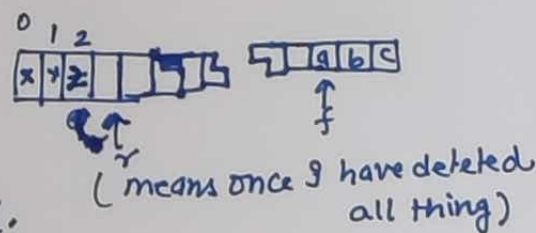 0 1 2
x y z a b c
r f
( means once I have deleted
all thing)